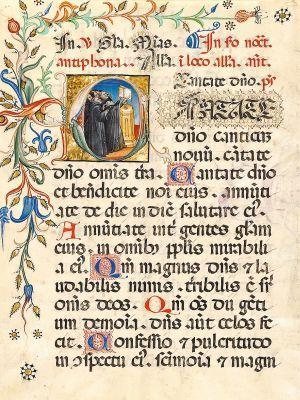 In v̄ Gla. Mias. In fo noct.
antiphona. Alla. i loco alla. an̄t.
Cantate dn̄o. ps̄
CANTATE
dn̄o canticū
nouū. cātate
dn̄o omis tr̄a. Cantate dn̄o
et bn̄dicite noi eius. annūti
ate de die in diē salutare ei⁹.
Annūtiate int̄ gentes glām
eius. in omīb⁹ pp̄lis mirabili
a ei⁹. Qm̄ magnus dn̄s & la
udabilis nimis. tribilis ē sr̄
omīs deos. Qm̄ oēs dii gēti
um demoīa. dn̄s aūt celos fe
cit. Confessio & pulcritudo
in ɔspectu ei⁹. scīmoīa & magni